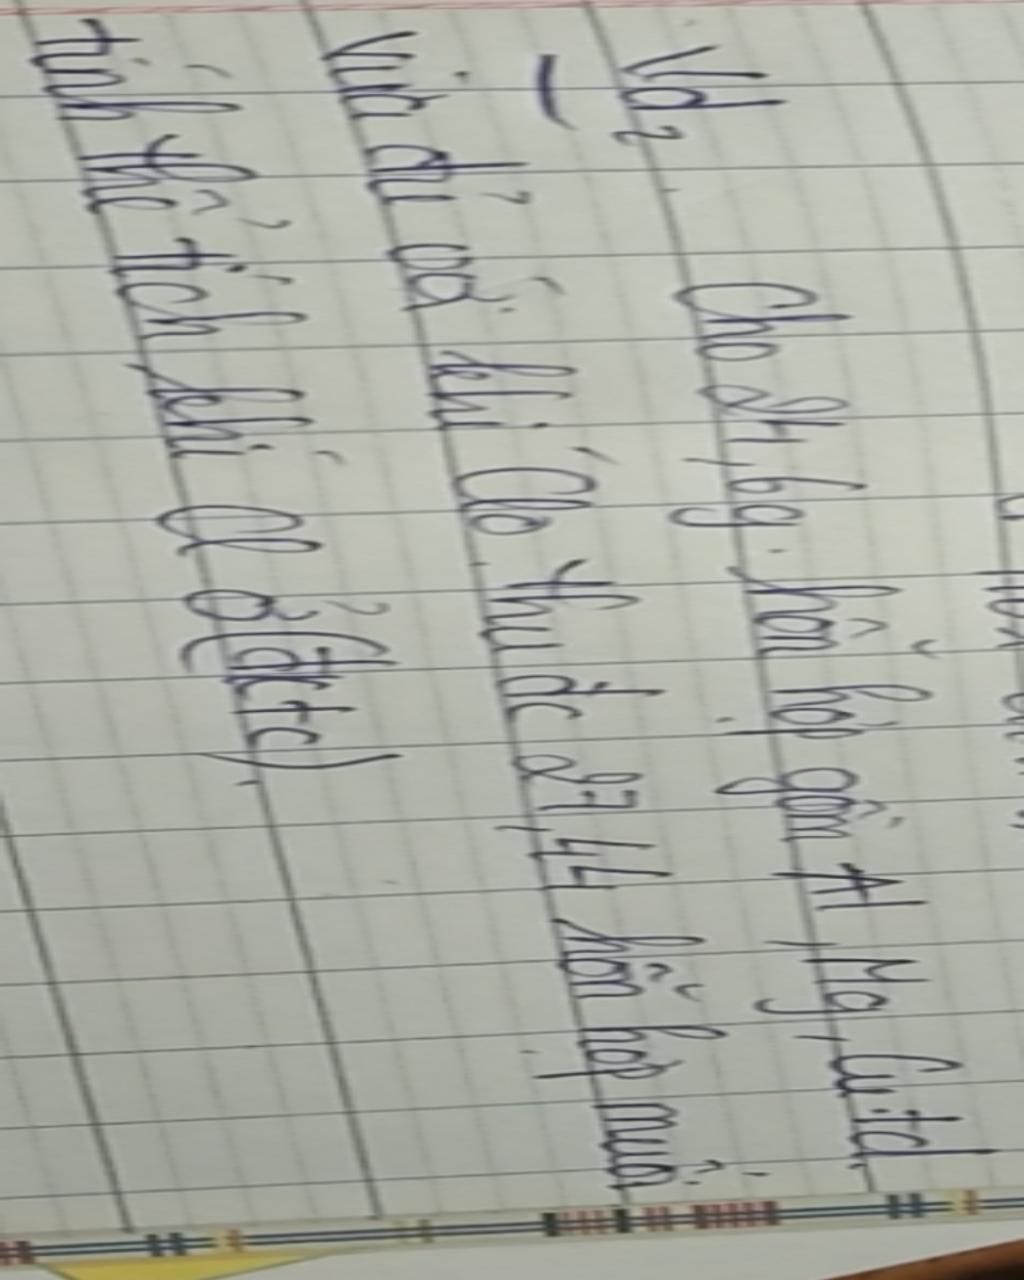 Vd2 Cho 27,6g hỗn hợp gồm Al, Mg, Cu td
vừa đủ với khí Clo thu đc 27,44 hỗn hợp muối
tính thể tích khí Cl ở (đktc)